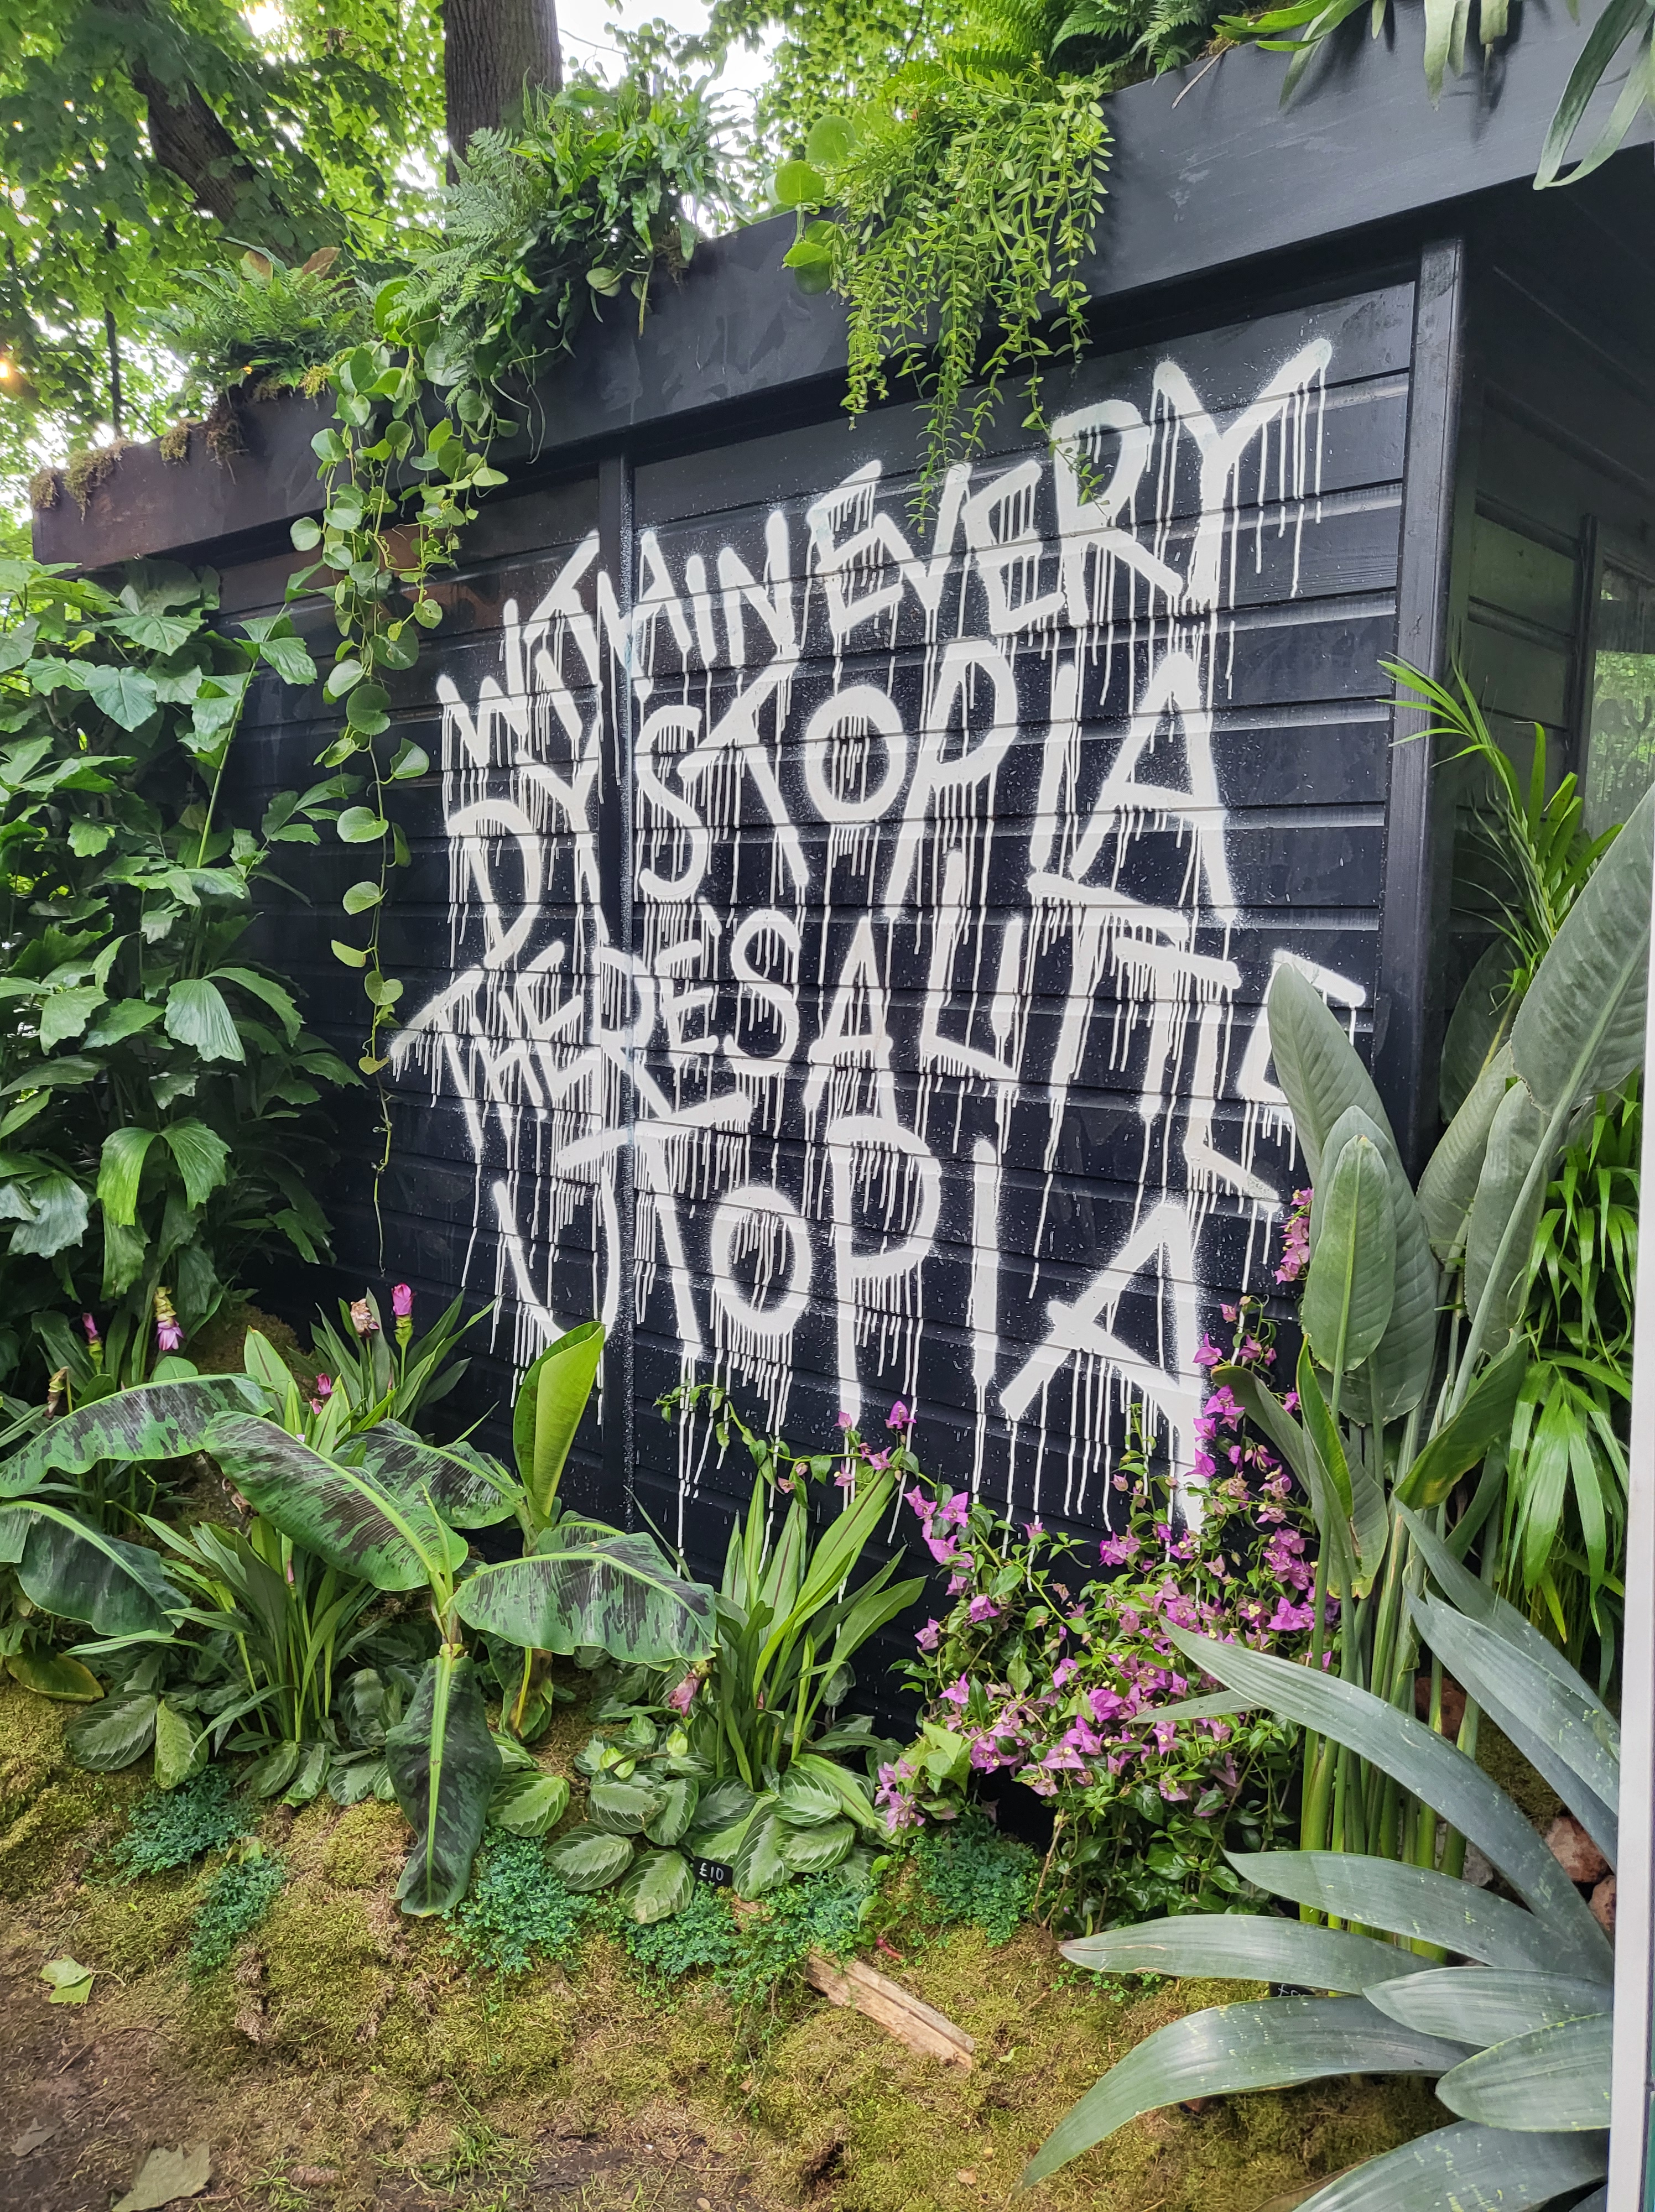 WITHIN EVERY
DYSTOPIA
THERE'S A LITTLE
UTOPIA
£10